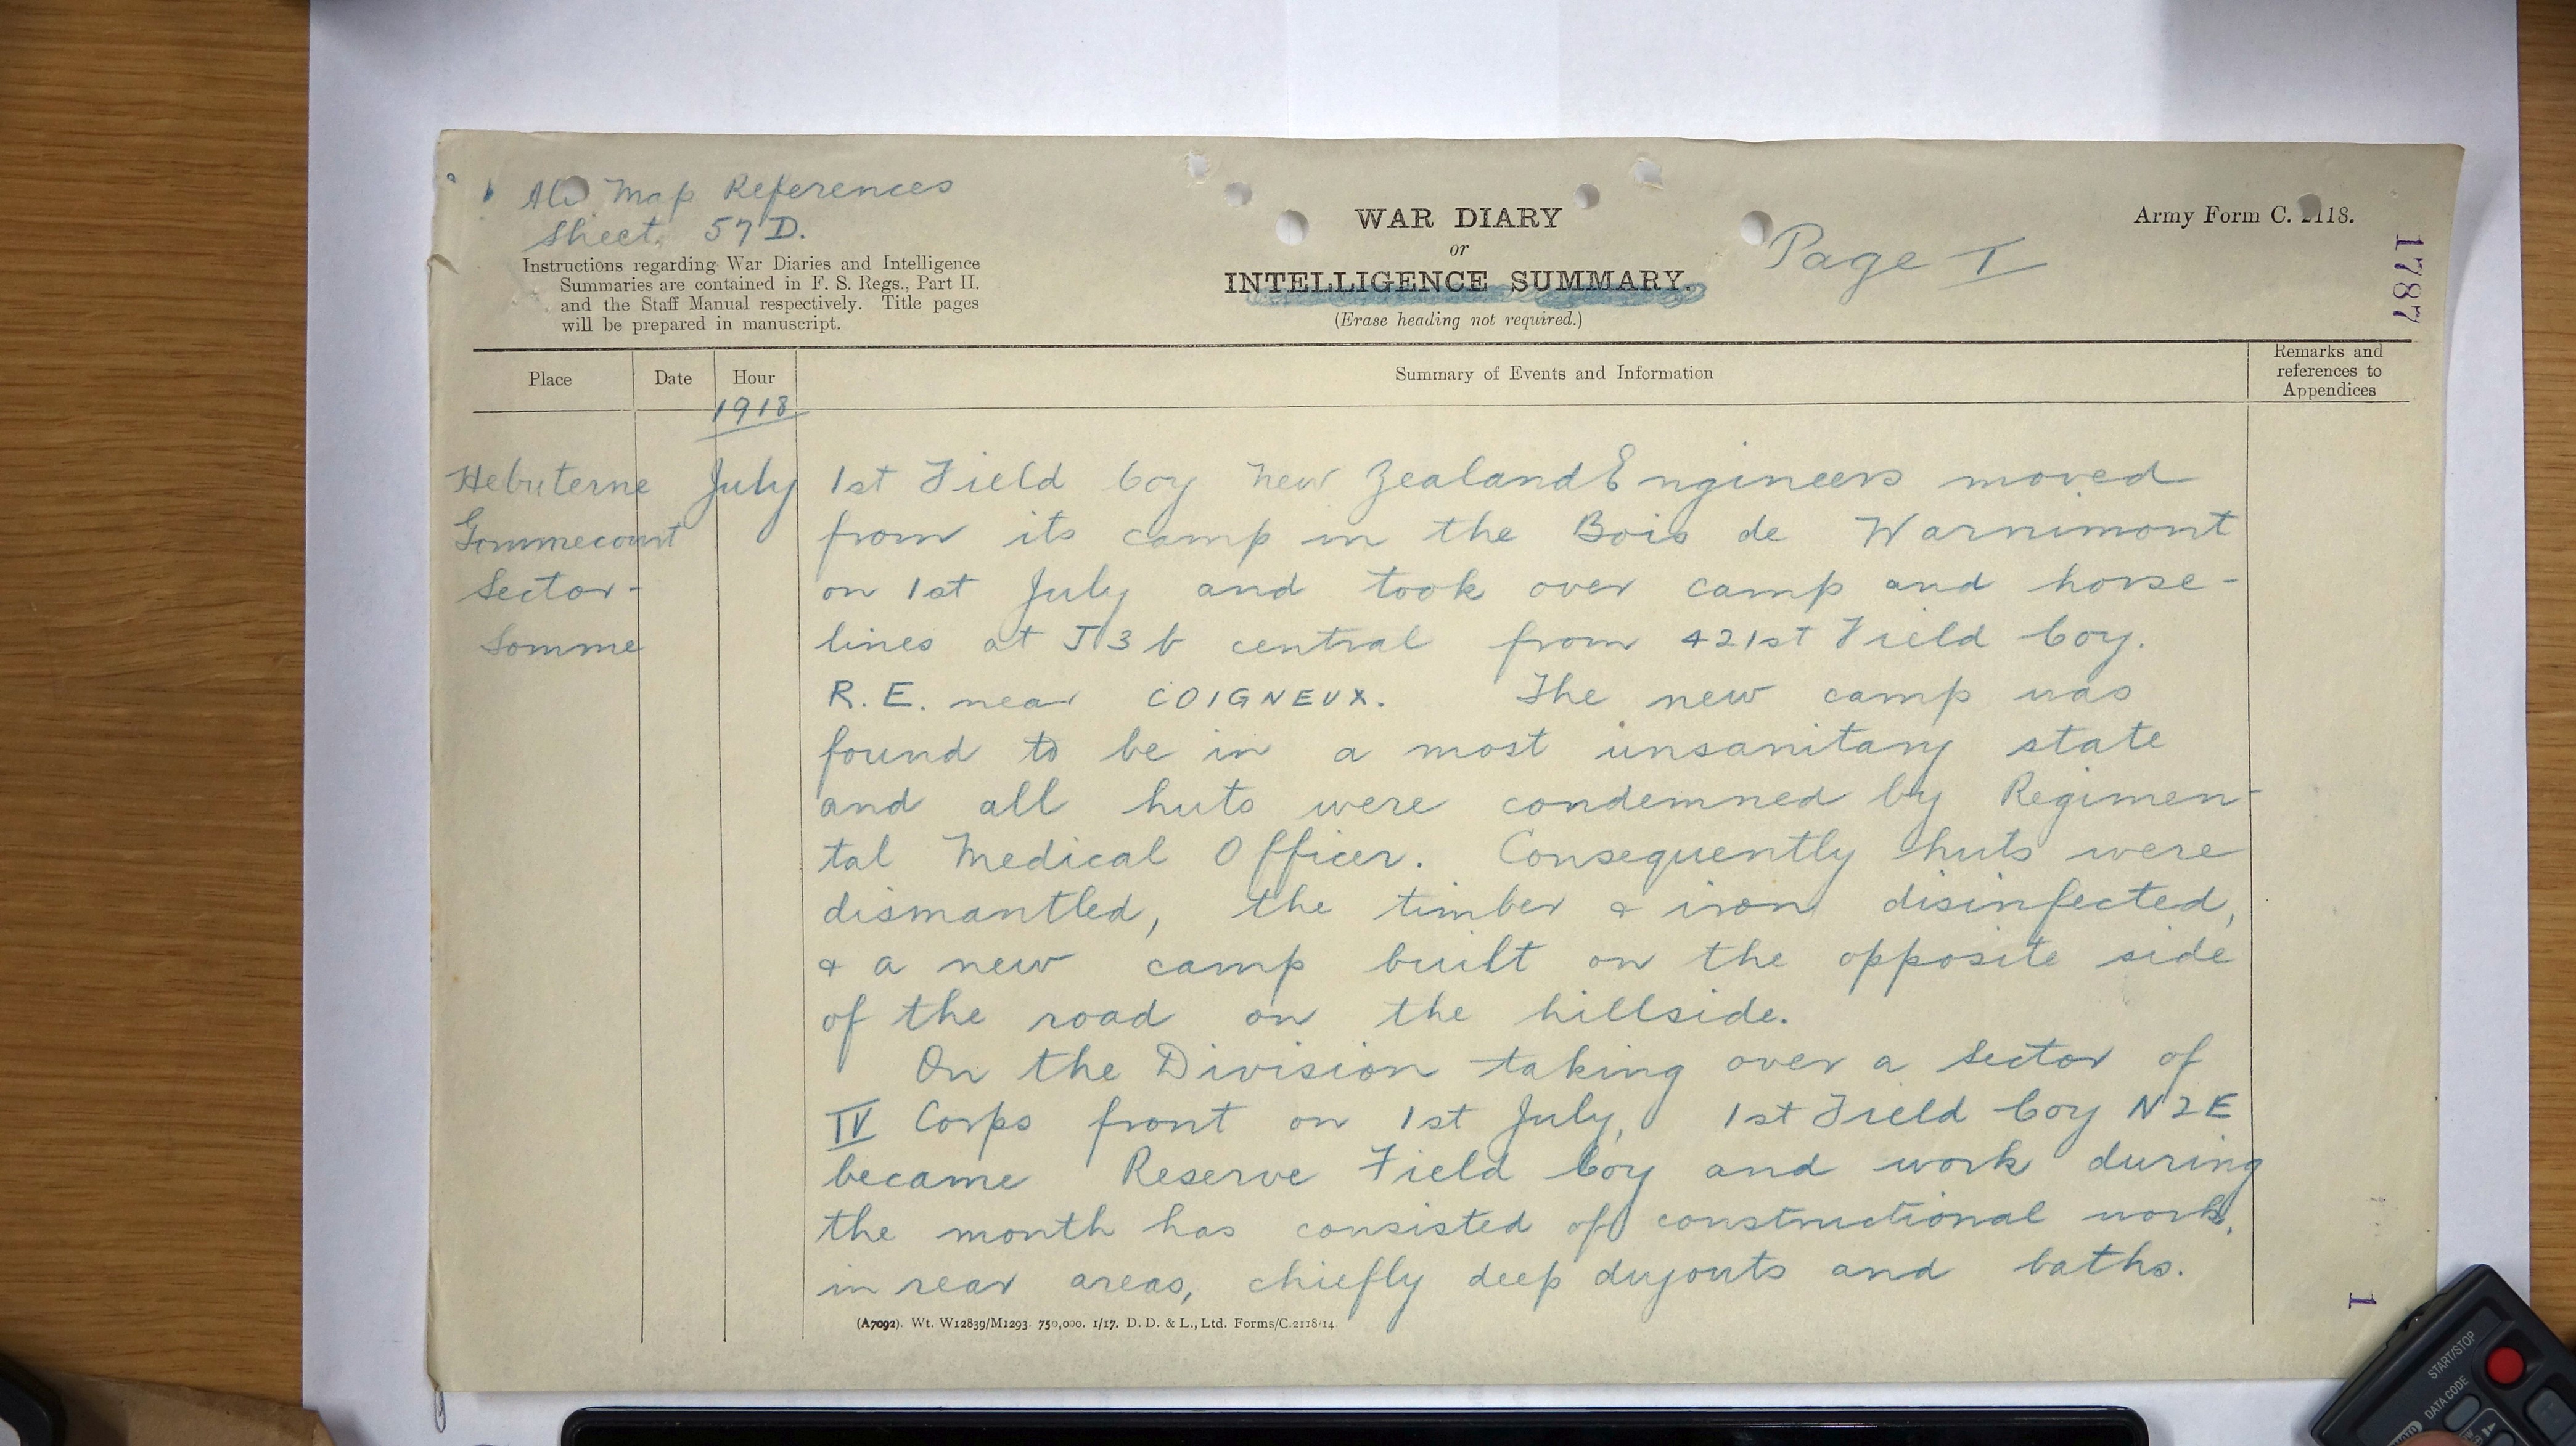 All Map References
Sheet 57D.
Instructions regarding War Diaries and Intelligence
Summaries are contained in F. S. Regs., Part II.
and the Staff Manual respectively. Title pages
will be prepared in manuscript.
WAR DIARY
or
INTELLIGENCE SUMMARY.
(Erase heading not required.)
Page I
Army Form C. 2118.
1787
Place Date Hour Summary of Events and Information Remarks and references to Appendices
1918
Hebuterne July
Gommecourt
Sector -
Somme
1st Field Coy New Zealand Engineers moved
from its camp in the Bois de Warnimont
on 1st July and took over camp and horse-
lines at J13b central from 421st Field Coy.
R.E. near COIGNEUX. The new camp was
found to be in a most unsanitary state
and all huts were condemned by Regimen-
tal Medical Officer. Consequently huts were
dismantled, the timber & iron disinfected,
& a new camp built on the opposite side
of the road on the hillside.
On the Division taking over a sector of
IV Corps front on 1st July, 1st Field Coy NZE
became Reserve Field Coy and work during
the month has consisted of constructional work,
in rear areas, chiefly deep dugouts and baths.
(A7092). Wt. W12839/M1293. 750,000. 1/17. D. D. & L., Ltd. Forms/C.2118/14.
1
START/STOP
DATA CODE